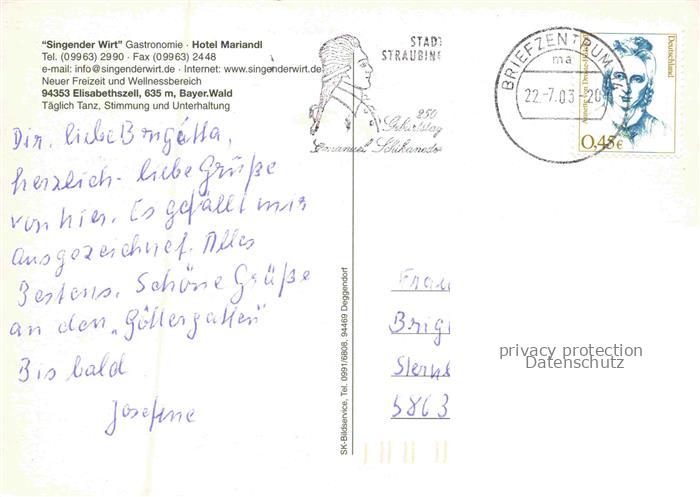 "Singender Wirt" Gastronomie · Hotel Mariandl
Tel. (09963) 2990 · Fax (09963) 2448
e-mail: info@singenderwirt.de · Internet: www.singenderwirt.de
Neuer Freizeit und Wellnessbereich
94353 Elisabethszell, 635 m, Bayer.Wald
Täglich Tanz, Stimmung und Unterhaltung
Dir, liebe Brigitta,
herzlich- liebe Grüße
von hier. Es gefällt mir
ausgezeichnet. Alles
Bestens. Schöne Grüße
an den „Göttergatten"
Bis bald
Josefine
SK-Bildservice, Tel. 0991/6808, 94469 Deggendorf
STADT
STRAUBING
250
Geburtstag
Emanuel Schikaneder
BRIEFZENTRUM
ma
22.-7.03-20
Deutschland
Annette von Droste-Hülshoff
0,45€
Frau
Brigi
Stern
5863
privacy protection
Datenschutz